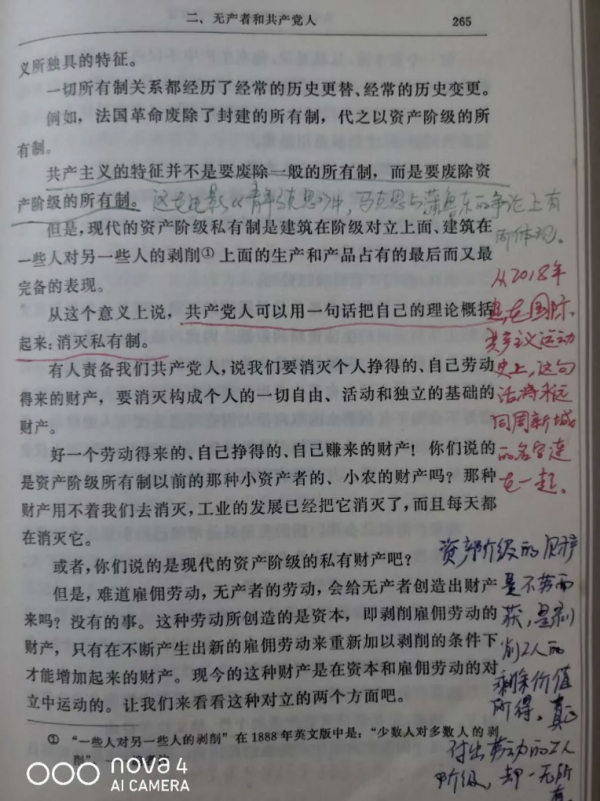 二、无产者和共产党人 265
义所独具的特征。
一切所有制关系都经历了经常的历史更替、经常的历史变更。
例如，法国革命废除了封建的所有制，代之以资产阶级的所
有制。
共产主义的特征并不是要废除一般的所有制，而是要废除资
产阶级的所有制。
这在电影《青年马克思》中，马克思与蒲鲁东的争论上有
所体现。
但是，现代的资产阶级私有制是建筑在阶级对立上面、建筑在
一些人对另一些人的剥削①上面的生产和产品占有的最后而又最
完备的表现。
从这个意义上说，共产党人可以用一句话把自己的理论概括
起来：消灭私有制。
从2018年
起，在国际
共产主义运动
史上，这句
话将永远
同周新城
的名字连
在一起。
有人责备我们共产党人，说我们要消灭个人挣得的、自己劳动
得来的财产，要消灭构成个人的一切自由、活动和独立的基础的
财产。
好一个劳动得来的、自己挣得的、自己赚来的财产！你们说的
是资产阶级所有制以前的那种小资产者的、小农的财产吗？那种
财产用不着我们去消灭，工业的发展已经把它消灭了，而且每天都
在消灭它。
或者，你们说的是现代的资产阶级的私有财产吧？
但是，难道雇佣劳动，无产者的劳动，会给无产者创造出财产
来吗？没有的事。这种劳动所创造的是资本，即剥削雇佣劳动的
财产，只有在不断产生出新的雇佣劳动来重新加以剥削的条件下
才能增加起来的财产。现今的这种财产是在资本和雇佣劳动的对
立中运动的。让我们来看看这种对立的两个方面吧。
阶级的财产
是不劳而
获，是剥
削工人的
剩余价值
所得。真正
付出劳动的工人
阶级，却一无所
有
① “一些人对另一些人的剥削”在1888年英文版中是：“少数人对多数人的剥
削”
nova 4
AI CAMERA